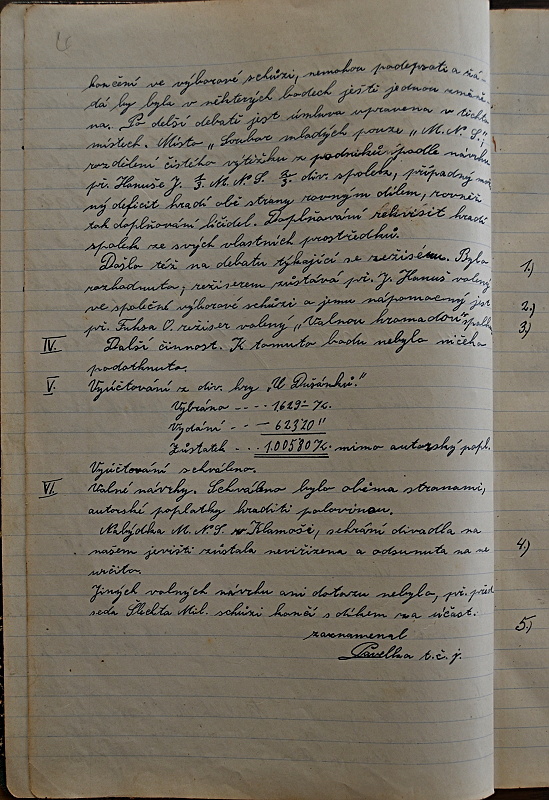 končení ve výborové schůzi, nemohou podepsati a žá-
dá by byla v některých bodech ještě jednou změně-
na. Po delší debatě jest úmluva upravena v těchto
místech. Místo „Soubor mladých pouze „M. N. S.",
rozdělení čistého výtěžku z podniků spadle návrhu
př. Hanuše J. ⅔ M. N. S. div. spolek, případný
ný deficit hradí obě strany rovným dílem, rovněž
tak doplňování líčidel. Doplňování rekvisit hradí
spolek ze svých vlastních prostředků.
Došlo též na debatu týkající se režiséru. Bylo
rozhodnuto; režiserem zůstává př. J. Hanuš volený
ve společné výborové schůzi a jemu nápomocný jest
př. Fuksa O. režiser volený „Valnou hromadou" spolku
IV. Další činnost. K tomuto bodu nebylo ničeho
podotknuto.
V. Vyúčtování z div. hry „U Dušánků."
Vybráno ---- 1629.- Kč.
Vydání --- 623 20 "
Zůstatek -- 1.005 80 Kč. mimo autorský popl.
Vyúčtování schváleno.
VI. Volné návrhy. Schváleno bylo oběma stranami,
autorské poplatky hraditi polovinou.
Nabídka M. N. S. v Klamoši, sehrání divadla na
našem jevišti zůstala nevyřízena a odsunuta na ne-
určito.
Jiných volných návrhu ani dotazu nebylo, př. před-
seda Šlechta Mil. schůzi končí s díkem za účast.
zaznamenal
Pavelka t. č. j.
1.)
2.)
3)
4.)
5.)